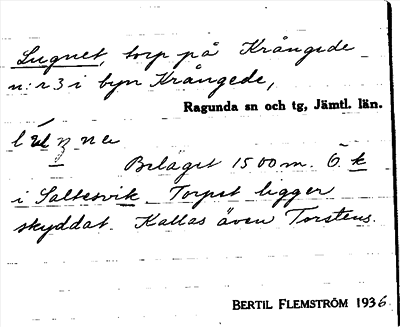 Lugnet, torp på Krångede
n:r 3 i byn Krångede,
Ragunda sn och tg, Jämtl. län.
Beläget 1500 m. Ö. k
i Saltesvik Torpet ligger
skyddat. Kallas även Torstens.
BERTIL FLEMSTRÖM 1936.